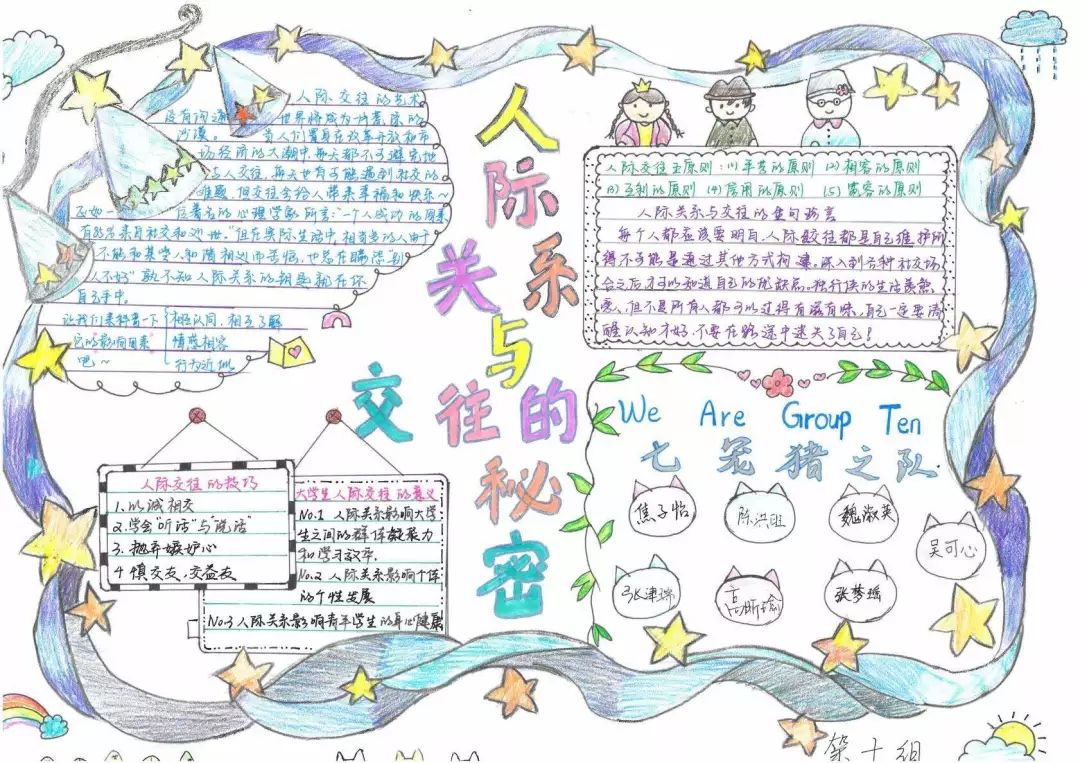 人际关系与交往的秘密
人际交往的艺术
没有沟通 世界将成为一片荒凉的
沙漠。 当人们置身在改革开放和市
场经济的大潮中,每天都不可避免地
与人交往,每天也有可能遇到社交的
难题,但交往会给人带来幸福和快乐~
正如一 位著名的心理学家所言:“一个人成功的因素
有85%来自社交和处世。”但在实际生活中,相当多的人由于
不能和其学人和
人不好”孰不知人际关系的钥匙就在你
自己手中。
让我们来科普一下
它的影响因素
吧~
相互认同,相互了解
情感相容
行为近似
人际交往五原则:(1)平等的原则 (2)相容的原则
(3)互利的原则 (4)信用的原则 (5)宽容的原则
人际关系与交往的金句
每个人都应该要明白,人际交往都是自己维护所
得不可能是通过其他方式构建。深入到各种社交场
合之后才可以知道自己的优缺点。独行侠的生活
人,但不是所有人都可以过得有滋有味,自己一定要清
醒认知才好,不要在路途中迷失了自己!
人际交往的技巧
1.以诚相交
2.学会“听话”与“说话”
3.抛弃嫉妒心
4.慎交友,交益友
大学生人际交往的意义
No.1 人际关系影响大学
生之间的群体凝聚力
和学习效率.
No.2 人际关系影响个体
的个性发展
No.3 人际关系影响青年学生的身心健康
We Are Group Ten
七笼猪之队
焦子怡
陈洪旺
魏淑英
吴可心
张津瑞
高昕瑜
张梦瑶
第十组